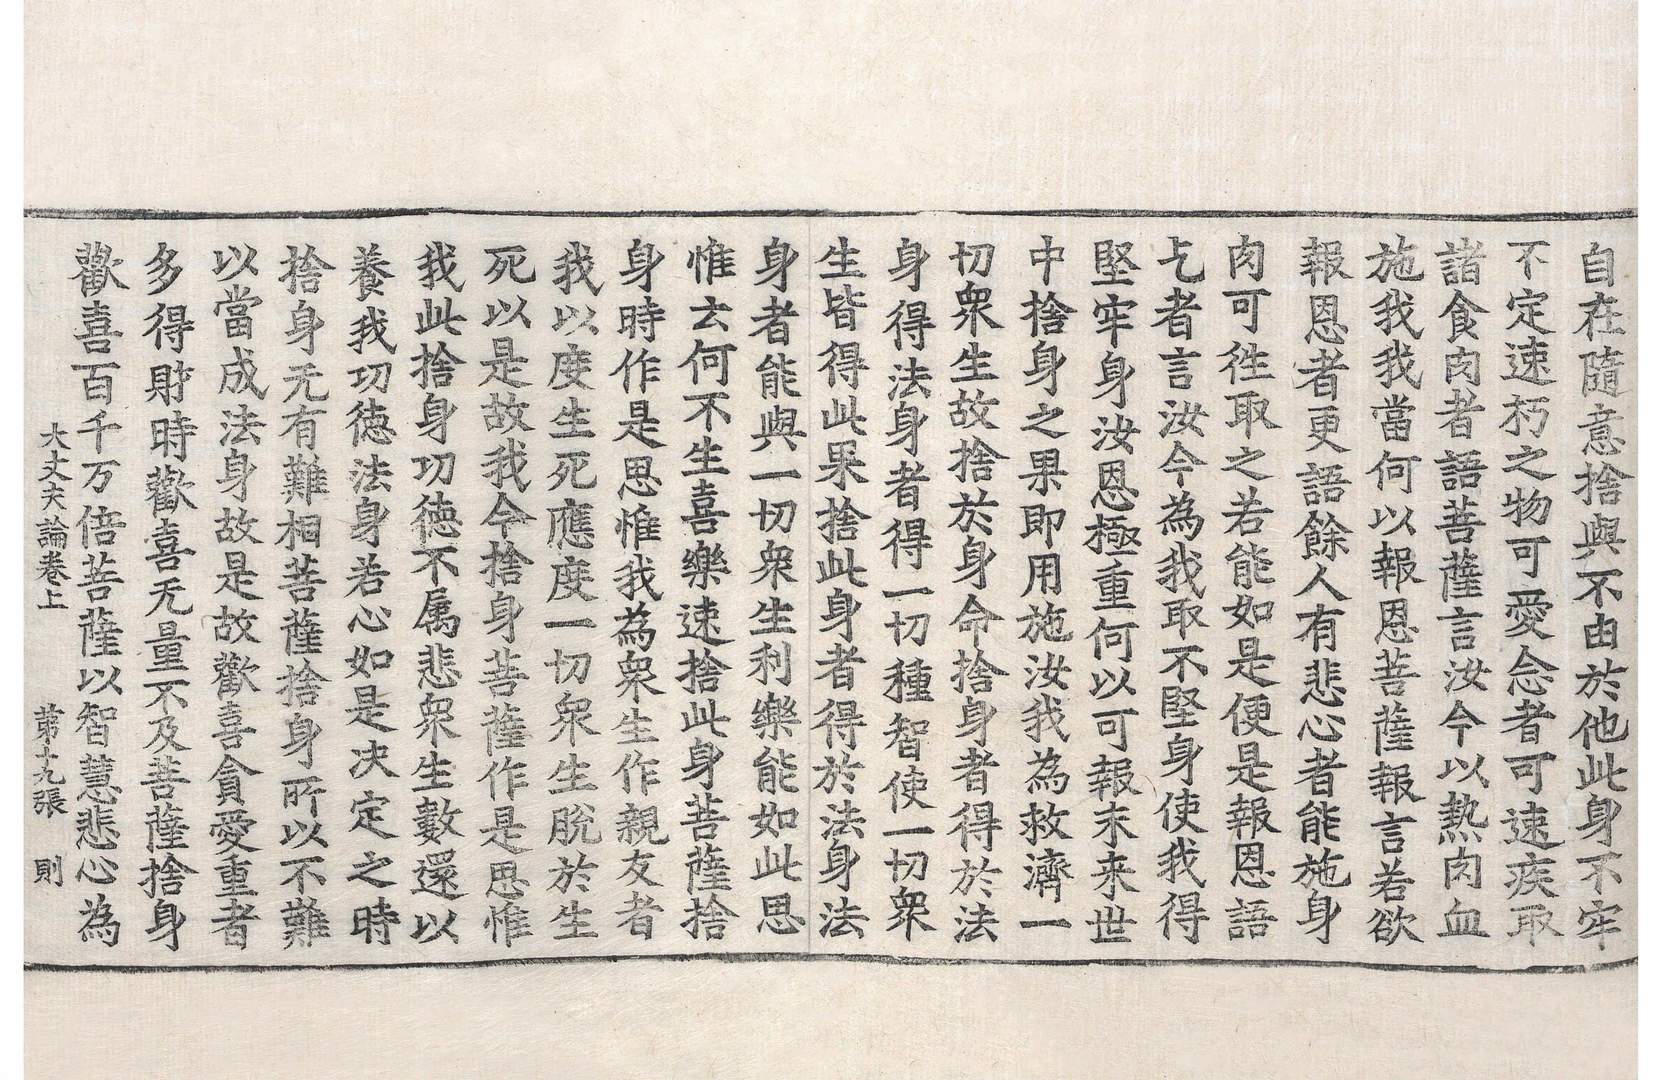 自在隨意捨與不由於他此身不牢
不定速朽之物可愛念者可速疾取
諸食肉者語菩薩言汝今以熱肉血
施我我當何以報恩菩薩報言若欲
報恩者更語餘人有悲心者能施身
肉可徃取之若能如是便是報恩語
乞者言汝今為我取不堅身使我得
堅牢身汝恩極重何以可報末来世
中捨身之果即用施汝我為救濟一
切衆生故捨於身命捨身者得於法
身得法身者得一切種智使一切衆
生皆得此果捨此身者得於法身法
身者能與一切衆生利樂能如此思
惟云何不生喜樂速捨此身菩薩捨
身時作是思惟我為衆生作親友者
我以度生死應度一切衆生脫於生
死以是故我今捨身菩薩作是思惟
我此捨身功徳不属悲衆生數還以
養我功徳法身若心如是决定之時
捨身无有難相菩薩捨身所以不難
以當成法身故是故歡喜貪愛重者
多得財時歡喜无量不及菩薩捨身
歡喜百千万倍菩薩以智慧悲心為
大丈夫論卷上 第十九張 則